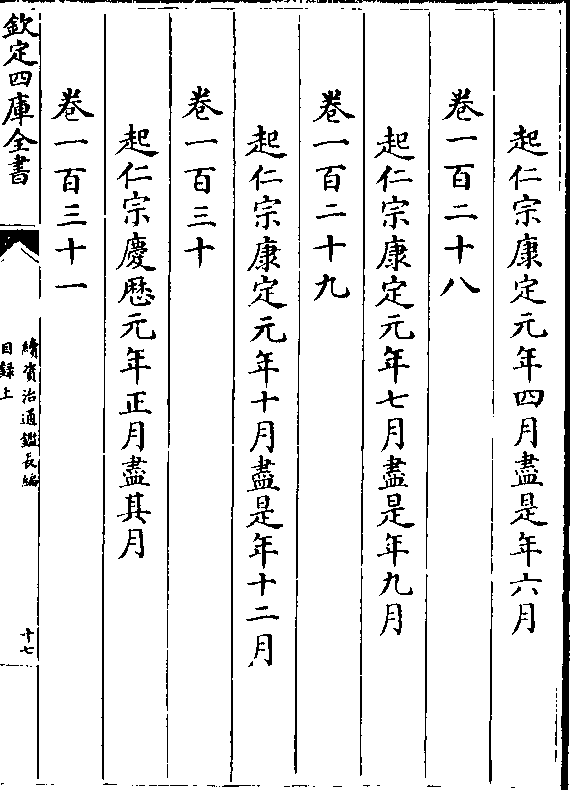 起仁宗康定元年四月盡是年六月
卷一百二十八
起仁宗康定元年七月盡是年九月
卷一百二十九
起仁宗康定元年十月盡是年十二月
卷一百三十
起仁宗慶歷元年正月盡其月
卷一百三十一
欽定四庫全書
續資治通鑑長編
目録上
十七